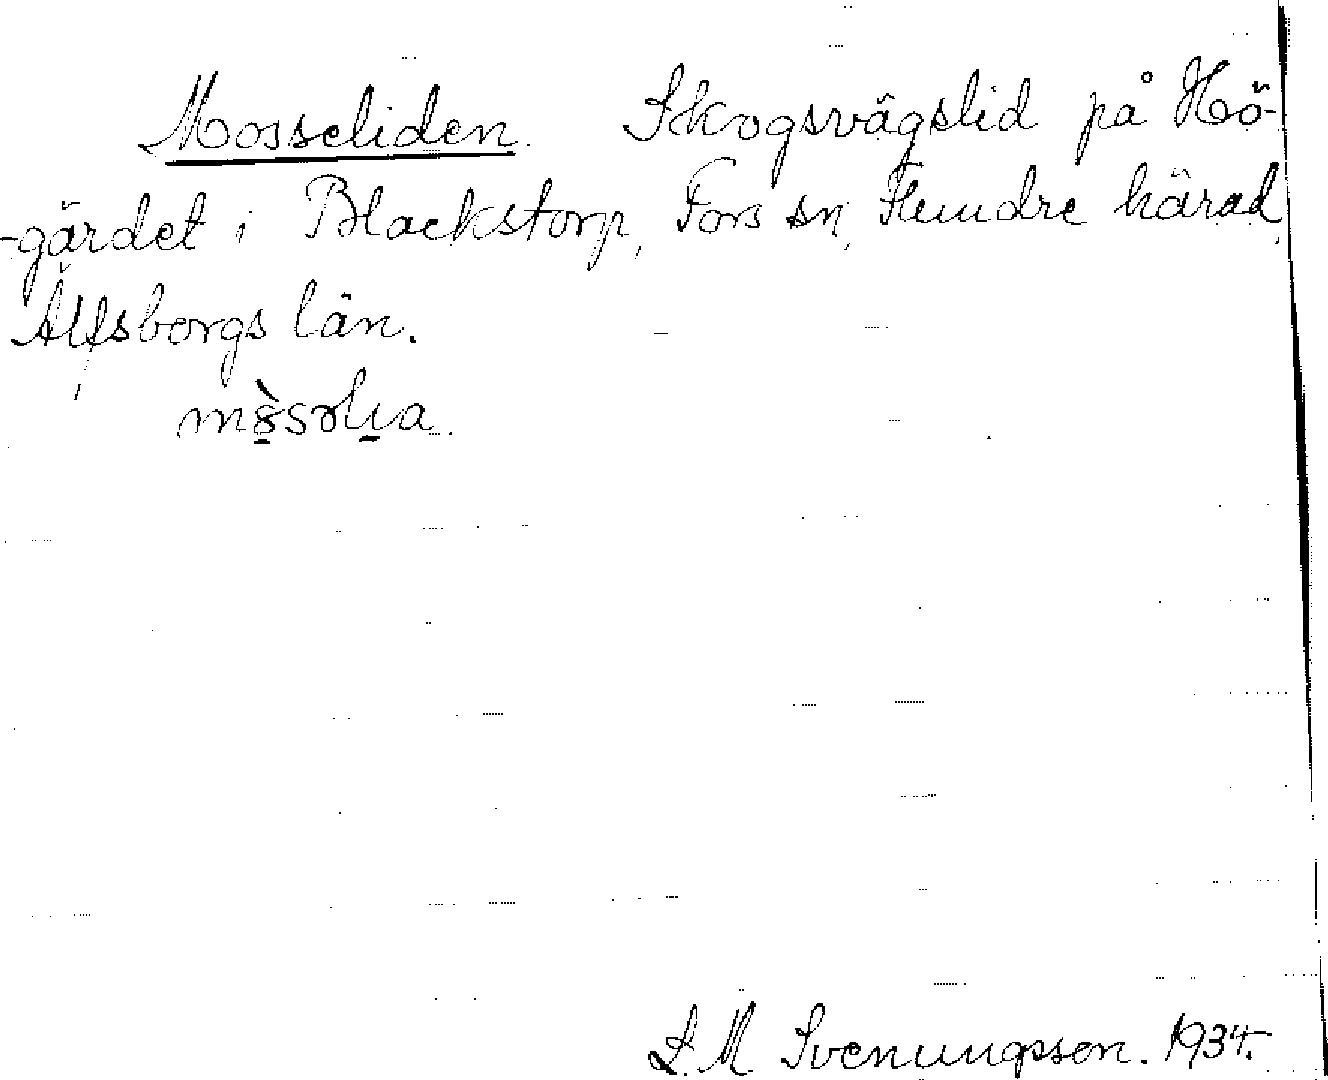 Mosseliden. Skogsvägslid på Hö-
-gärdet i Blackstorp, Fors sn, Flundre härad,
Älfsborgs län.
L. M. Svenungsson. 1934.